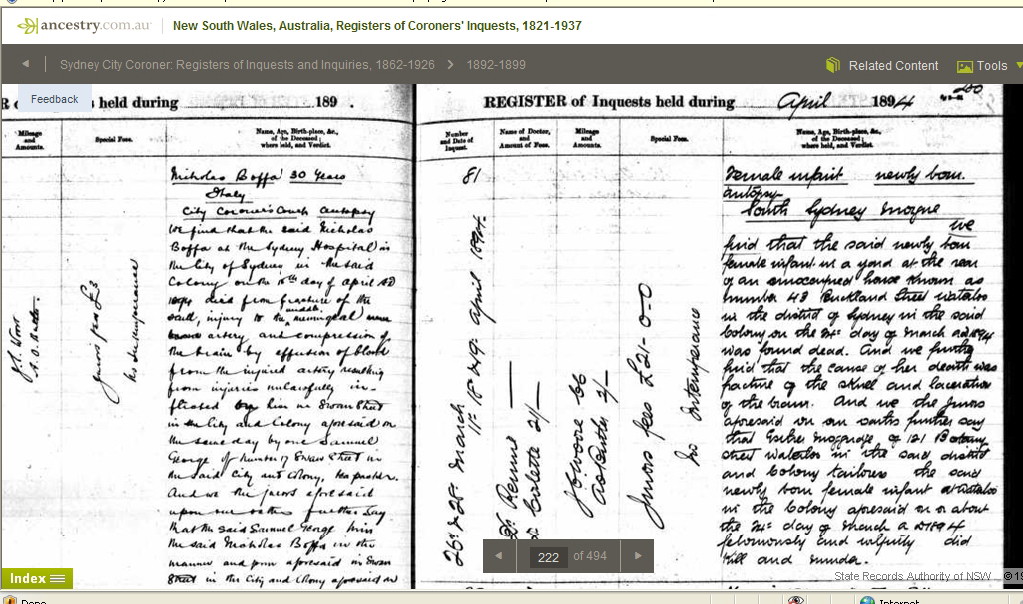 ancestry.com.au
New South Wales, Australia, Registers of Coroners' Inquests, 1821-1937
Sydney City Coroner: Registers of Inquests and Inquiries, 1862-1926 > 1892-1899
Related Content
Tools
Feedback
s held during 189 .
Mileage and Amounts.
Special Fees.
Name, Age, Birth-place, &c., of the Deceased; where held, and Verdict.
Nicholas Boffa 30 Years
Italy
City Coroner's Court Autopsy
We find that the said Nicholas
Boffa at the Sydney Hospital in
the City of Sydney in the said
Colony on the 15th day of April AD
1894 died from fracture of the
skull, injury to the middle meningeal
artery and compression of
the brain by effusion of blood
from the injured artery resulting
from injuries unlawfully in-
flicted on him in Swan Street
in the City and Colony aforesaid on
the same day by one Samuel
George of number 17 Swan Street in
the said City and Colony,
And we the jurors aforesaid
upon our oaths further say
that the said Samuel George him
the said Nicholas Boffa in the
manner and form aforesaid in Swan
Street in the City and Colony aforesaid on
Jurors fees £3
No Intemperance
REGISTER of Inquests held during April 1894
Number and Date of Inquest.
Name of Doctor, and Amount of Fees.
Mileage and Amounts.
Special Fees.
Name, Age, Birth-place, &c., of the Deceased; where held, and Verdict.
81
26th & 28th March
11th 18th & 19th April 1894.
Dr Rennie
Jurors fees £21-0-0
No Intemperance
Female infant newly born.
autopsy
South Sydney Morgue
We
find that the said newly born
female infant in a yard at the rear
of an unoccupied house known as
number 43 Buckland Street Waterloo
in the district of Sydney in the said
Colony on the 24th day of March AD 1894
was found dead. And we further
find that the cause of her death was
fracture of the skull and laceration
of the brain. And we the Jurors
aforesaid on our oaths further say
that Esther of 121 Botany
street Waterloo in the said district
and Colony tailoress the said
newly born female infant at Waterloo
in the Colony aforesaid on or about
the 24th day of March AD 1894
feloniously and wilfully did
kill and murder.
222 of 494
Index
State Records Authority of NSW
Done
Internet